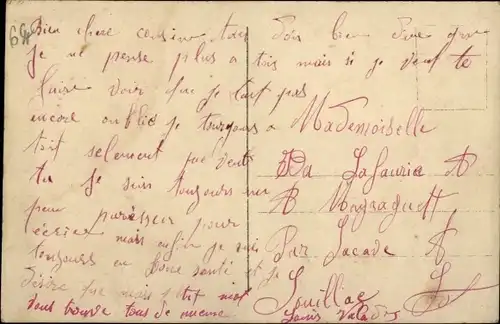 Bien chere cousine tu dois bien dire que
je ne pense plus a tois mais si je veut te
faire voir que je tait pas
encore oublié je tourjours a
toit selement
tu je suis toujours un
peux paresseur pour
ecrire mais enfin je suis
toujours en bone santé et je
désire que mais petit mot
vous trouve tous de meme
Mademoiselle
Lafaurie
A Magnagutt
Par Lacave
Souillac Lot
Louis Valadis